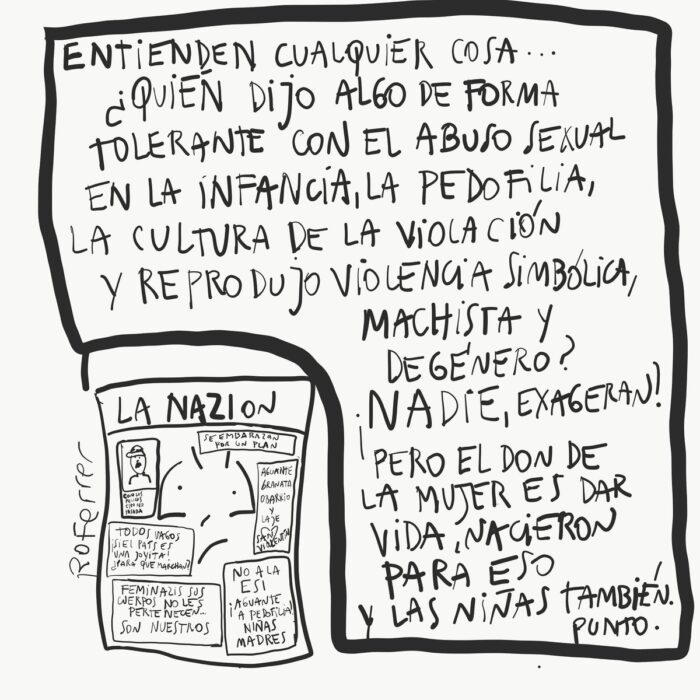 ENTIENDEN CUALQUIER COSA...
¿QUIÉN DIJO ALGO DE FORMA
TOLERANTE CON EL ABUSO SEXUAL
EN LA INFANCIA, LA PEDOFILIA,
LA CULTURA DE LA VIOLACIÓN
Y REPRODUJO VIOLENCIA SIMBÓLICA,
MACHISTA Y
DE GÉNERO?
¡NADIE, EXAGERAN!
PERO EL DON DE
LA MUJER ES DAR
VIDA, NACIERON
PARA ESO
Y LAS NIÑAS TAMBIÉN.
PUNTO.
LA NAZION
SE EMBARAZAN
POR UN PLAN
CON LOS
ESTO NO
PASABA
AGUANTE
GRANATA
OBARRIO
Y
LAJE
VIOLENTA
TODOS VAGOS
¡SI EL PAÍS ES
UNA JOYITA!
¿PARA QUE MARCHAN?
FEMINAZIS SUS
CUERPOS NO LES
PERTENECEN...
SON NUESTROS
NO A LA
ESI
¡AGUANTE
LA PEDOFILIA!
NIÑAS
MADRES
RoFerrer